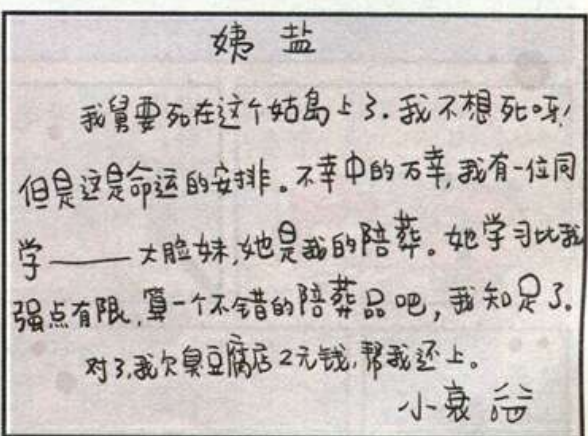 姨盐
我舅要死在这个姑岛上了.我不想死呀!
但是这是命运的安排。不幸中的万幸,我有一位同
学——大脸妹,她是我的陪葬。她学习比我
强点有限,算一个不错的陪葬品吧,我知足了.
对了,我欠臭豆腐店2元钱,帮我还上。
小衰